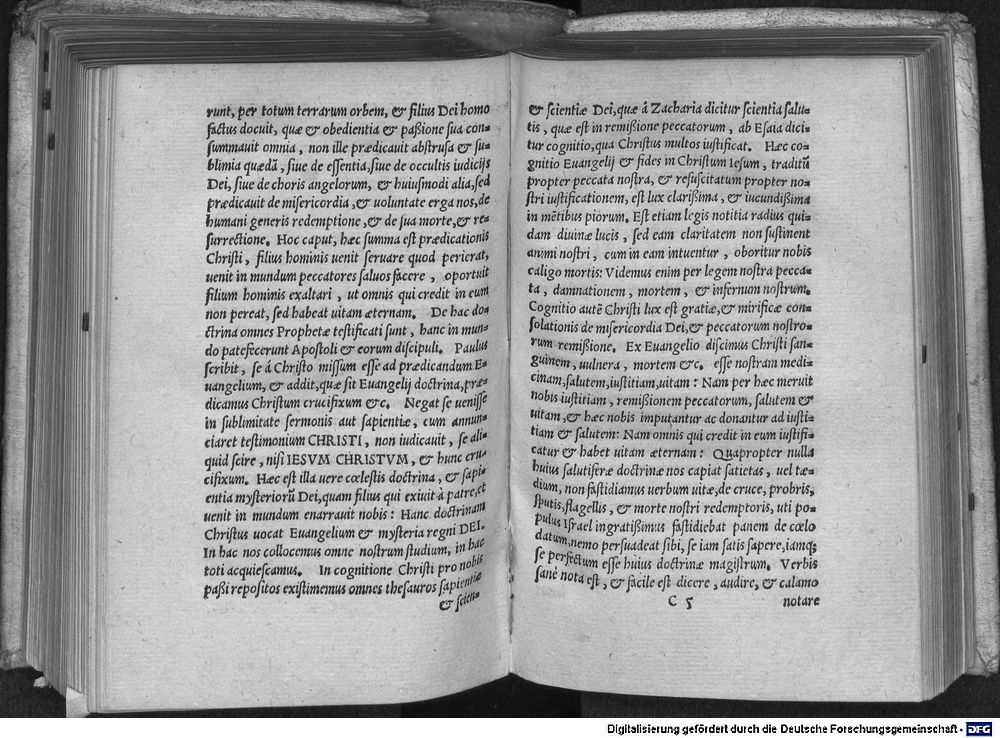 runt, per totum terrarum orbem, & filius Dei homo
factus docuit, quæ & obedientia & paßione sua con=
summauit omnia, non ille prædicauit abstrusa & su=
blimia quædã, siue de essentia, siue de occultis iudicijs
Dei, siue de choris angelorum, & huiusmodi alia, sed
prædicauit de misericordia, & uoluntate erga nos, de
humani generis redemptione, & de sua morte, & re=
surrectione. Hoc caput, hæc summa est prædicationis
Christi, filius hominis uenit seruare quod perierat,
uenit in mundum peccatores saluos facere, oportuit
filium hominis exaltari, ut omnis qui credit in eum
non pereat, sed habeat uitam æternam. De hac do=
ctrina omnes Prophetæ testificati sunt, hanc in mun=
do patefecerunt Apostoli & eorum discipuli. Paulus
scribit, se á Christo missum esse ad prædicandum E=
uangelium, & addit, quæ sit Euangelij doctrina, præ=
dicamus Christum crucifixum &c. Negat se uenisse
in sublimitate sermonis aut sapientiæ, cum annun=
ciaret testimonium CHRISTI, non iudicauit, se ali=
quid scire, nisi IESVM CHRISTVM, & hunc cru=
cifixum. Hæc est illa uere cœlestis doctrina, & sapi=
entia mysteriorũ Dei, quam filius qui exiuit à patre, et
uenit in mundum enarrauit nobis: Hanc doctrinam
Christus uocat Euangelium & mysteria regni DEI.
In hac nos collocemus omne nostrum studium, in hac
toti acquiescamus. In cognitione Christi pro nobis
paßi repositos existimemus omnes thesauros sapientiæ
& scien=
& scientiæ Dei, quæ á Zacharia dicitur scientia salu=
tis, quæ est in remißione peccatorum, ab Esaia dici=
tur cognitio, qua Christus multos iustificat. Hæc co=
gnitio Euangelij & fides in Christum Iesum, traditũ
propter peccata nostra, & resuscitatum propter no=
stri iustificationem, est lux clarißima, & iucundißima
in mẽtibus piorum. Est etiam legis notitia radius qui=
dam diuinæ lucis, sed eam claritatem non sustinent
animi nostri, cum in eam intuentur, oboritur nobis
caligo mortis: Videmus enim per legem nostra pecca=
ta, damnationem, mortem, & infernum nostrum.
Cognitio autẽ Christi lux est gratiæ, & mirificæ con=
solationis de misericordia Dei, & peccatorum nostro=
rum remißione. Ex Euangelio discimus Christi san=
guinem, uulnera, mortem &c. esse nostram medi=
cinam, salutem, iustitiam, uitam: Nam per hæc meruit
nobis iustitiam, remißionem peccatorum, salutem &
uitam, & hæc nobis imputantur ac donantur ad iusti=
tiam & salutem: Nam omnis qui credit in eum iustifi=
catur & habet uitam æternam: Quapropter nulla
huius salutiferæ doctrinæ nos capiat satietas, uel tæ=
dium, non fastidiamus uerbum uitæ, de cruce, probris,
sputis, flagellis, & morte nostri redemptoris, uti po=
pulus Israel ingratißimus fastidiebat panem de cœlo
datum, nemo persuadeat sibi, se iam satis sapere, iamq;
se perfectum esse huius doctrinæ magistrum. Verbis
sanè nota est, & facile est dicere, audire, & calamo
C 5 notare
Digitalisierung gefördert durch die Deutsche Forschungsgemeinschaft - DFG